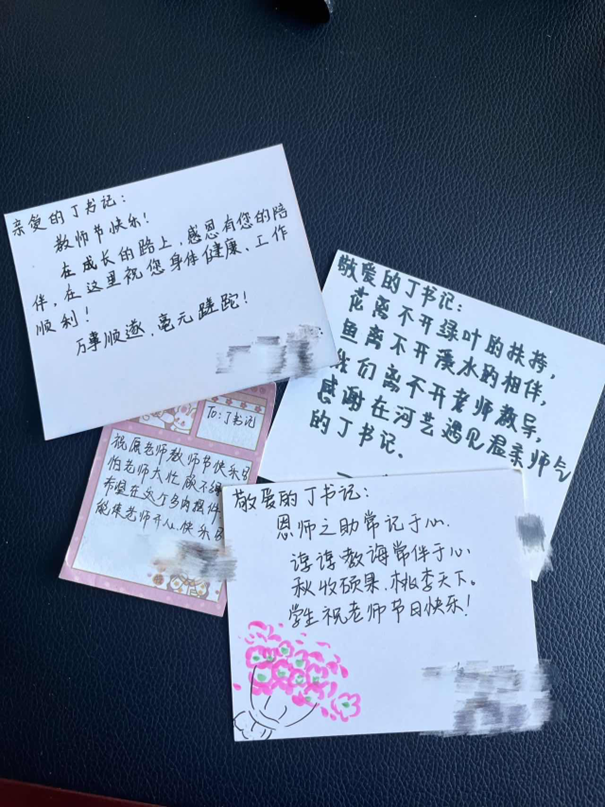 亲爱的丁书记：
教师节快乐！
在成长的路上，感恩有您的陪
伴，在这里祝您身体健康、工作
顺利！
万事顺遂，毫无蹉跎！
敬爱的丁书记：
花离不开绿叶的扶持，
鱼离不开溪水的相伴，
我们离不开老师教导，
感谢在河艺遇见温柔帅气
的丁书记．
To：丁书记
祝愿老师教师节快乐
怕老师太忙
希望在这个
能使老师开心、快乐
敬爱的丁书记：
恩师之助常记于心．
谆谆教诲常伴于心
秋收硕果．桃李天下。
学生祝老师节日快乐！